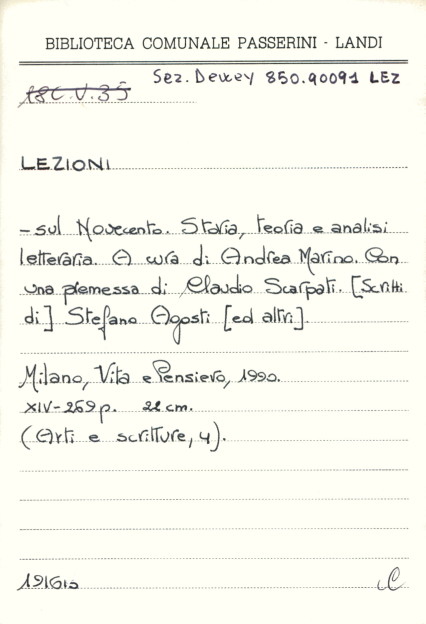 BIBLIOTECA COMUNALE PASSERINI - LANDI
Sez. Dewey 850.90091 LEZ
18C.V.35
LEZIONI
- sul Novecento. Storia, teoria e analisi
letteraria. A cura di Andrea Marino. Con
una premessa di Claudio Scarpati. [Scritti
di] Stefano Agosti [ed altri].
Milano, Vita e Pensiero, 1990.
XIV-259 p. 22 cm.
(Arti e scritture, 4).